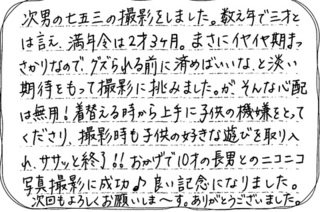 次男の七五三の撮影をしました。数え年で三才と
は言え、満年令は2才3ヶ月。まさにイヤイヤ期まっ
さかりなので、グズられる前に済めばいいな、と淡い
期待をもって撮影に挑みました。が、そんな心配
は無用！着替える時から上手に子供の機嫌をとって
くださり、撮影時も子供の好きな遊びを取り入
れ、ササッと終了!!おかげで10才の長男とのニコニコ
写真撮影に成功♪良い記念になりました。
次回もよろしくお願いしま〜す。ありがとうございました。